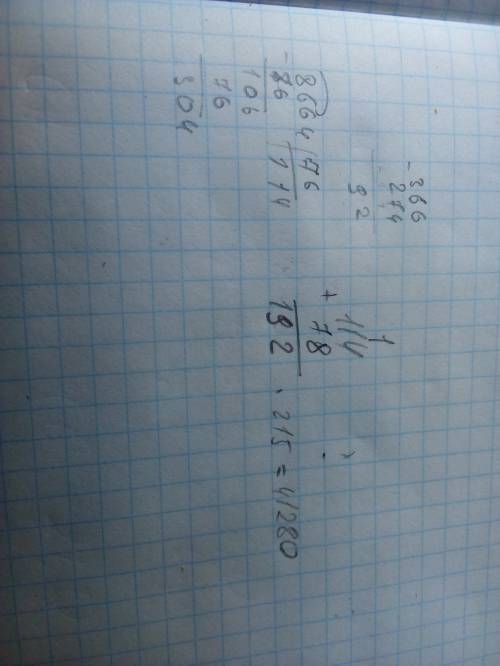 -366
274
92
-8664 76
76 114
106
76
304
1
114
+ 78
192 · 215 = 41280